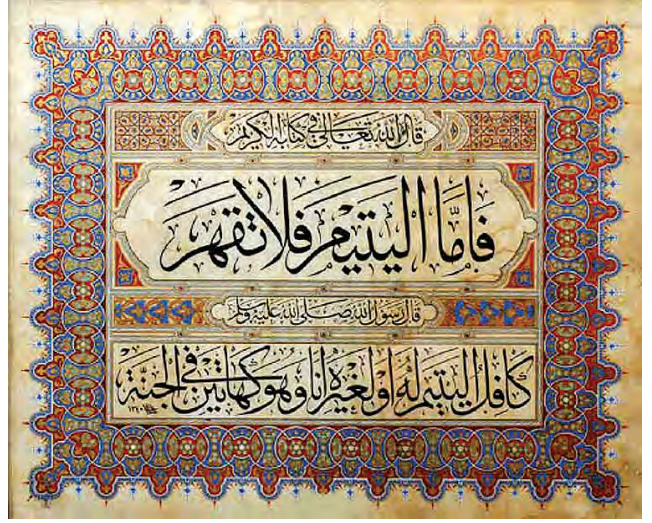 قال الله تعالى في كتابه الكريم
فَأَمَّا الْيَتِيْمَ فَلَا تَقْهَرْ
قال رسول الله صلى الله عليه وسلم
كافل اليتيم له أو لغيره أنا وهو كهاتين في الجنة